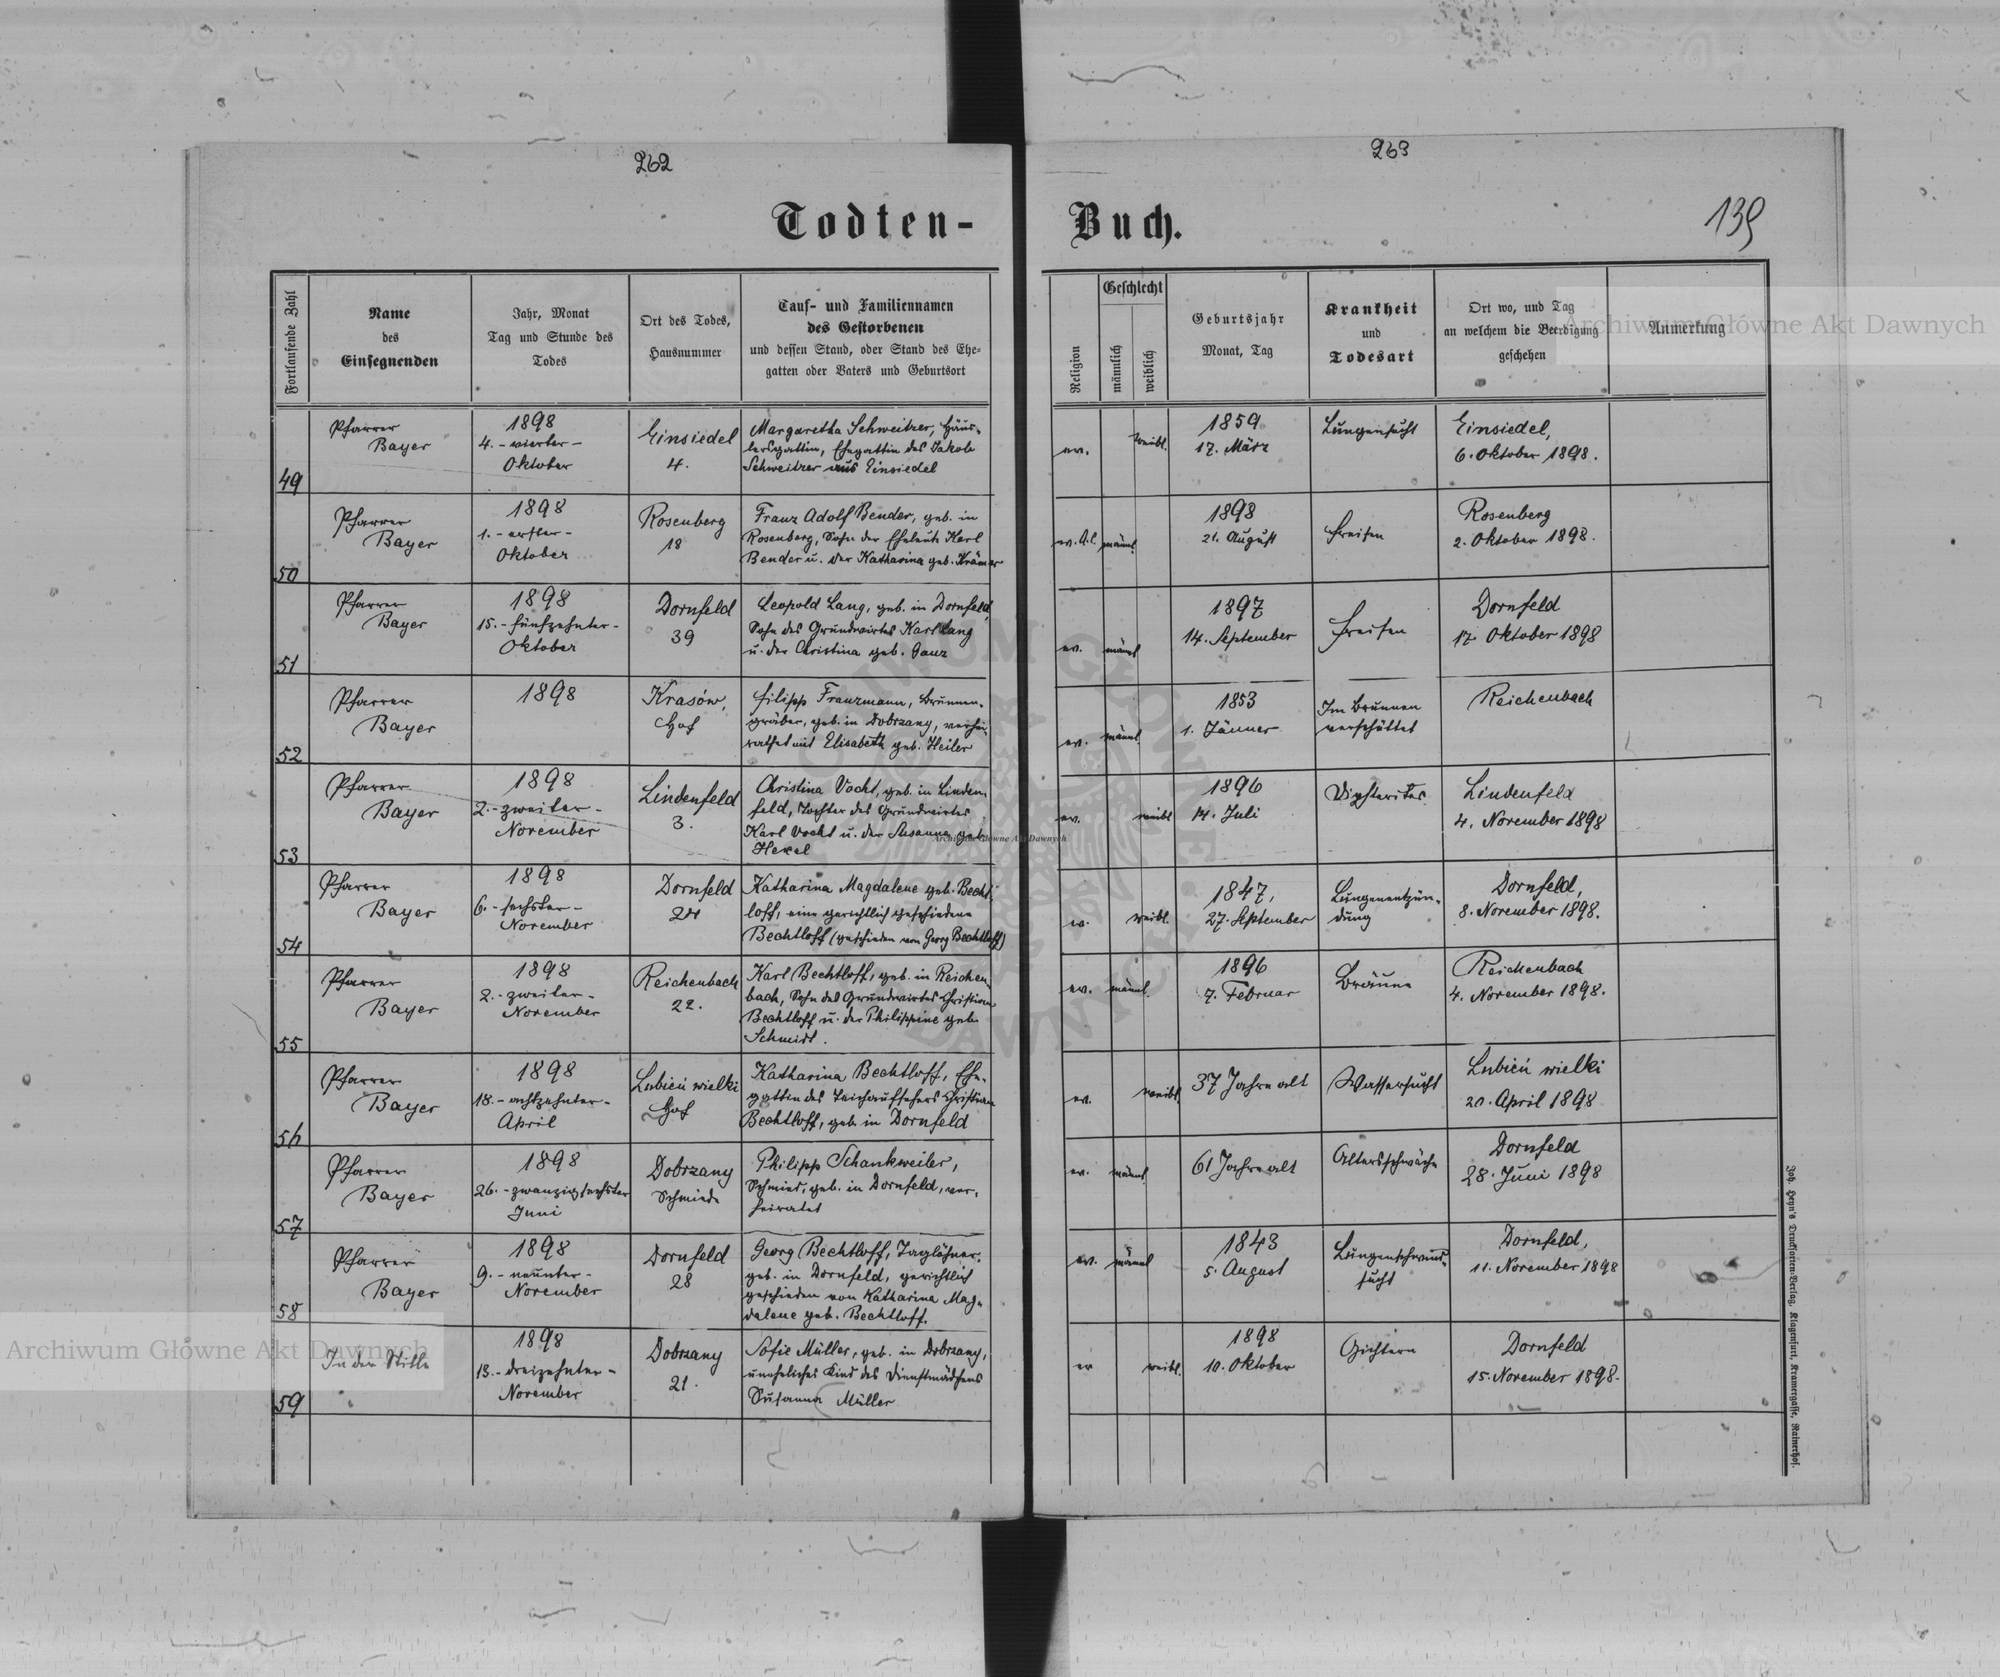 262
263
139
Todten-Buch.
Fortlaufende Zahl
Name
des
Einsegnenden
Jahr, Monat
Tag und Stunde des
Todes
Ort des Todes,
Hausnummer
Tauf- und Familiennamen
des Gestorbenen
und dessen Stand, oder Stand des Ehe-
gatten oder Vaters und Geburtsort
Religion
Geschlecht
männlich
weiblich
Geburtsjahr
Monat, Tag
Krankheit
und
Todesart
Ort wo, und Tag
an welchem die Beerdigung
geschehen
Anmerkung
49
Pfarrer
Bayer
1898
4. - vierter -
Oktober
Einsiedel
4.
Margaretha Schweitzer, Häus-
lersgattin, Ehegattin des Jakob
Schweitzer aus Einsiedel
ev.
weibl.
1859
17. März
Lungensucht
Einsiedel,
6. Oktober 1898.
50
Pfarrer
Bayer
1898
1. - erster -
Oktober
Rosenberg
18
Franz Adolf Bender, geb. in
Rosenberg, Sohn der Eheleute Karl
Bender u. der Katharina geb. Krämer
ev. A.C.
männl.
1898
21. August
Freisen
Rosenberg
2. Oktober 1898.
51
Pfarrer
Bayer
1898
15. - fünfzehnter -
Oktober
Dornfeld
39
Leopold Lang, geb. in Dornfeld,
Sohn des Grundwirtes Karl Lang
u. der Christina geb. Ganz
ev.
männl
1897
14. September
Freisen
Dornfeld
17. Oktober 1898
52
Pfarrer
Bayer
1898
Krasów,
Hof
Filipp Franzmann, Brunnen-
gräber, geb. in Dobrzany, verhei-
rathet mit Elisabeth geb. Heiler
ev.
männl.
1853
1. Jänner
Im Brunnen
verschüttet
Reichenbach
53
Pfarrer
Bayer
1898
2. - zweiter -
November
Lindenfeld
3.
Christina Vocht, geb. in Linden-
feld, Tochter des Grundwirtes
Karl Vocht u. der Susanna geb.
Hexel
ev.
weibl
1896
14. Juli
Diphteritis
Lindenfeld
4. November 1898
54
Pfarrer
Bayer
1898
6. - sechster -
November
Dornfeld
24
Katharina Magdalene geb. Becht-
loff, eine gerichtlich geschiedene
Bechtloff (geschieden von Georg Bechtloff)
ev.
weibl.
1847,
27. September
Lungenentzün-
dung
Dornfeld,
8. November 1898.
55
Pfarrer
Bayer
1898
2. - zweiter -
November
Reichenbach
22.
Karl Bechtloff, geb. in Reichen-
bach, Sohn des Grundwirtes Christian
Bechtloff u. der Philippine geb.
Schmidt.
ev.
männl.
1896
7. Februar
Bräune
Reichenbach
4. November 1898.
56
Pfarrer
Bayer
1898
18. - achtzehnter -
April
Lubień wielki
Hof
Katharina Bechtloff, Ehe-
gattin des Teichaufsehers Christian
Bechtloff, geb. in Dornfeld
ev.
weibl.
37 Jahre alt
Wassersucht
Lubień wielki
20. April 1898
57
Pfarrer
Bayer
1898
26. - zwanzigsechster
Juni
Dobrzany
Schmiede
Philipp Schankweiler,
Schmied, geb. in Dornfeld, ver-
heiratet
ev.
männl
61 Jahre alt
Altersschwäche
Dornfeld
28. Juni 1898
58
Pfarrer
Bayer
1898
9. - neunter -
November
Dornfeld
28
Georg Bechtloff, Taglöhner,
geb. in Dornfeld, gerichtlich
geschieden von Katharina Mag-
dalene geb. Bechtloff.
ev.
männl
1843
5. August
Lungenschwind-
sucht
Dornfeld,
11. November 1898
59
In der Stille
1898
13. - dreizehnter -
November
Dobrzany
21.
Sofie Müller, geb. in Dobrzany,
uneheliches Kind des Dienstmädchens
Susanna Müller
ev
weibl.
1898
10. Oktober
Gichtern
Dornfeld
15. November 1898.
Joh. Heyn's Drucksorten-Verlag, Klagenfurt, Kramergasse, Rainerhof.
Archiwum Główne Akt Dawnych
Archiwum Główne Akt Dawnych
Archiwum Główne Akt Dawnych
ARCHIWUM GŁÓWNE AKT DAWNYCH